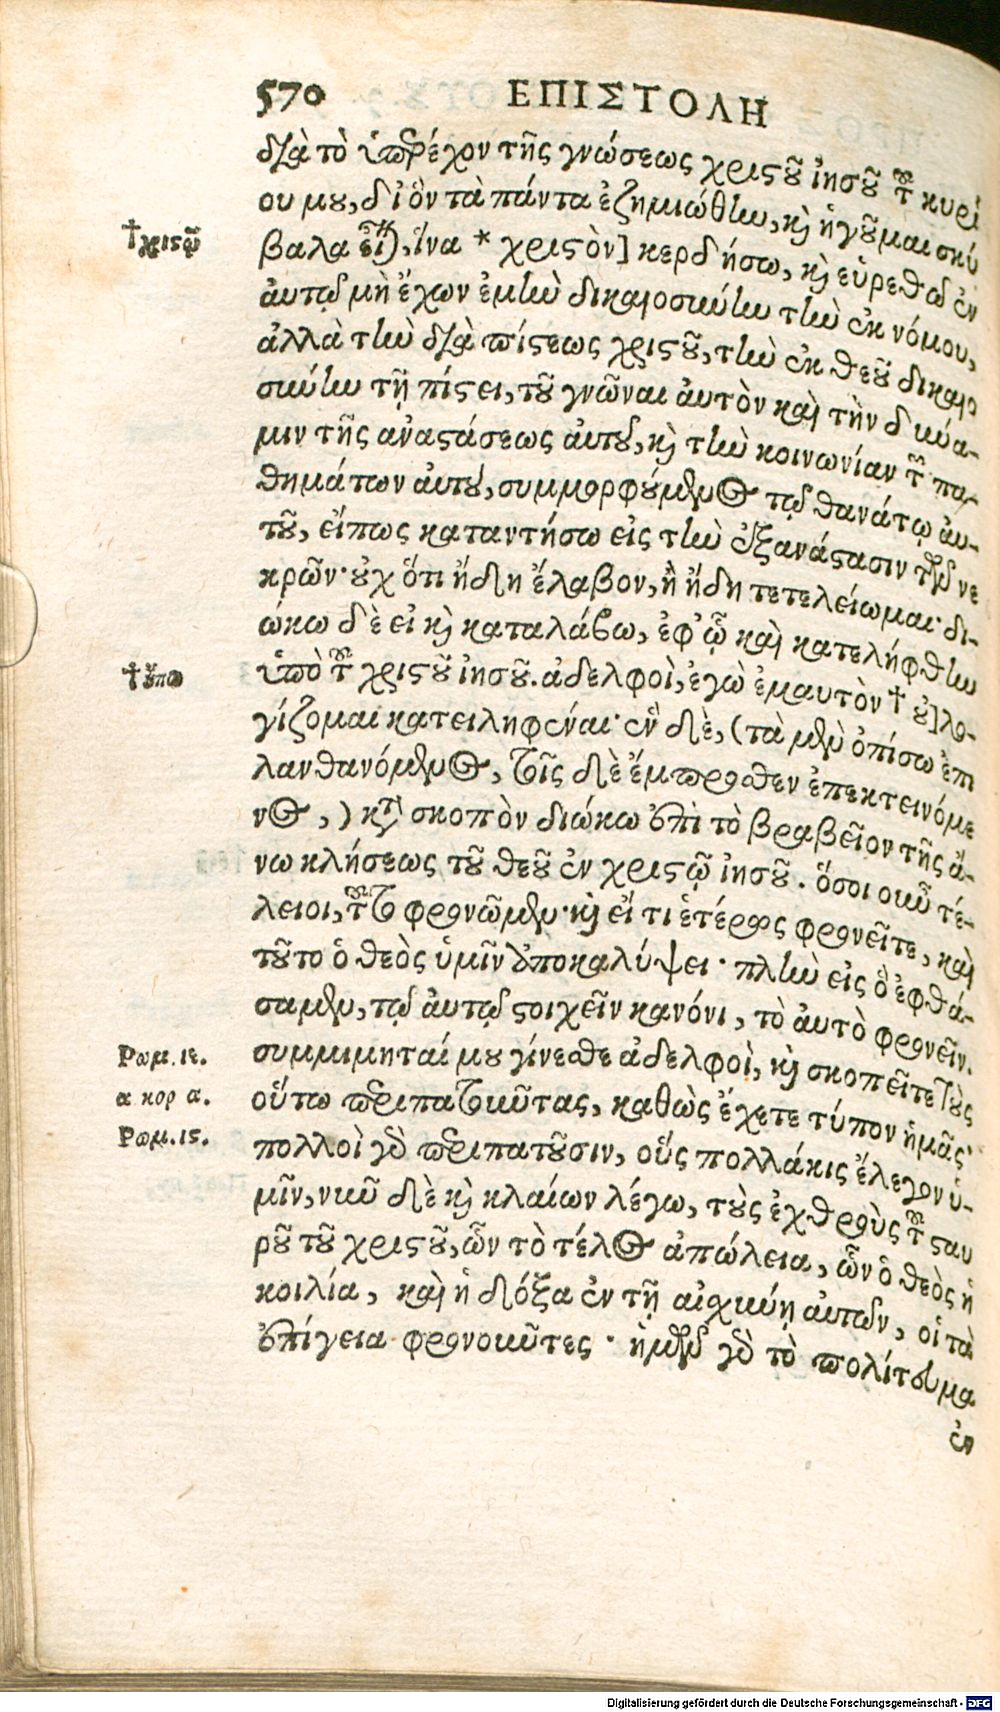 570 ΕΠΙΣΤΟΛΗ
διὰ τὸ ὑπερέχον τῆς γνώσεως χριστοῦ ἰησοῦ τοῦ κυρί
ου μου, δι᾽ ὃν τὰ πάντα ἐζημιώθην, καὶ ἡγοῦμαι σκύ
†χριστῷ
βαλα εἶναι, ἵνα * χριστὸν] κερδήσω, καὶ εὑρεθῶ ἐν
ἀυτῷ μὴ ἔχων ἐμὴν δικαιοσύνην τὴν ἐκ νόμου,
ἀλλὰ τὴν διὰ πίστεως χριστοῦ, τὴν ἐκ θεοῦ δικαιο
σύνην τῇ πίστει, τοῦ γνῶναι ἀυτὸν καὶ τὴν δύνα-
μιν τῆς ἀναστάσεως ἀυτοῦ, καὶ τὴν κοινωνίαν τῶν πα-
θημάτων ἀυτοῦ, συμμορφούμενος τῷ θανάτῳ ἀυ-
τοῦ, εἴπως καταντήσω εἰς τὴν ἐξανάστασιν τῶν νε
κρῶν· οὐχ ὅτι ἤδη ἔλαβον, ἢ ἤδη τετελείωμαι· δι-
ώκω δὲ εἰ καὶ καταλάβω, ἐφ᾽ ᾧ καὶ κατελήφθην
†οὔπω
ὑπὸ τοῦ χριστοῦ ἰησοῦ. ἀδελφοὶ, ἐγὼ ἐμαυτὸν † οὐ] λο-
γίζομαι κατειληφέναι· ἓν δὲ, (τὰ μὲν ὀπίσω ἐπι
λανθανόμενος, τοῖς δὲ ἔμπροσθεν ἐπεκτεινόμε
νος,) κατὰ σκοπὸν διώκω ἐπὶ τὸ βραβεῖον τῆς ἄ-
νω κλήσεως τοῦ θεοῦ ἐν χριστῷ ἰησοῦ. ὅσοι οὖν τέ-
λειοι, τοῦτο φρονῶμεν· καὶ εἴ τι ἑτέρως φρονεῖτε, καὶ
τοῦτο ὁ θεὸς ὑμῖν ἀποκαλύψει· πλὴν εἰς ὃ ἐφθά-
σαμεν, τῷ ἀυτῷ στοιχεῖν κανόνι, τὸ ἀυτὸ φρονεῖν.
Ρωμ. ιε.
συμμιμηταί μου γίνεσθε ἀδελφοὶ, καὶ σκοπεῖτε τοὺς
α κορ α.
οὕτω περιπατοῦντας, καθὼς ἔχετε τύπον ἡμᾶς·
Ρωμ. ις.
πολλοὶ γὰρ περιπατοῦσιν, οὓς πολλάκις ἔλεγον ὑ-
μῖν, νῦν δὲ καὶ κλαίων λέγω, τοὺς ἐχθροὺς τοῦ σταυ
ροῦ τοῦ χριστοῦ, ὧν τὸ τέλος ἀπώλεια, ὧν ὁ θεὸς ἡ
κοιλία, καὶ ἡ δόξα ἐν τῇ αἰσχύνῃ ἀυτῶν, οἱ τὰ
ἐπίγεια φρονοῦντες· ἡμῶν γὰρ τὸ πολίτευμα
ἐν
Digitalisierung gefördert durch die Deutsche Forschungsgemeinschaft - DFG